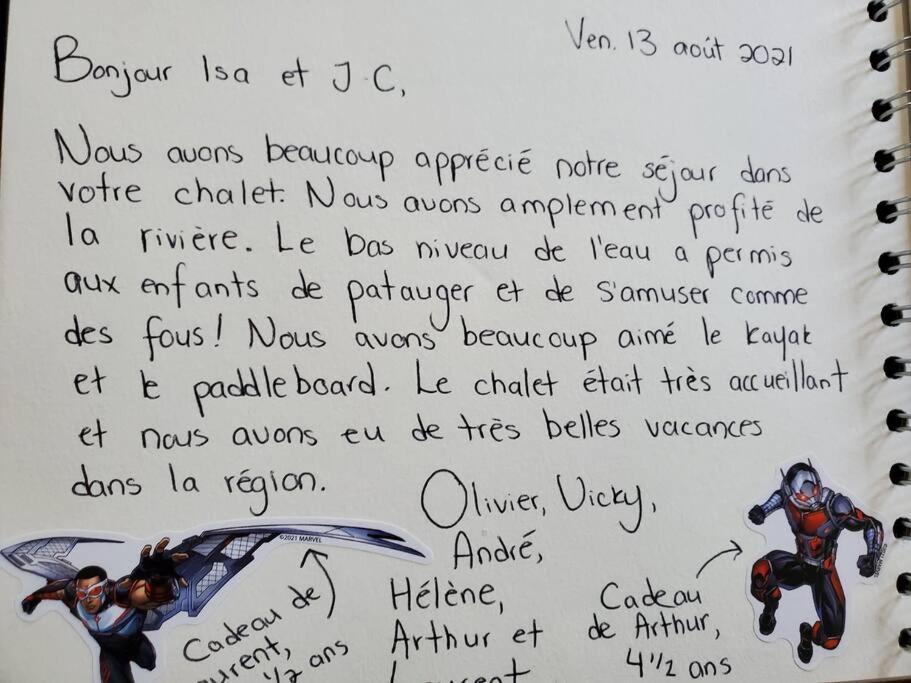 Ven. 13 août 2021
Bonjour Isa et J.C,
Nous avons beaucoup apprécié notre séjour dans
votre chalet. Nous avons amplement profité de
la rivière. Le bas niveau de l'eau a permis
aux enfants de patauger et de s'amuser comme
des fous! Nous avons beaucoup aimé le kayak
et le paddleboard. Le chalet était très accueillant
et nous avons eu de très belles vacances
dans la région.
Olivier, Vicky,
André,
Hélène,
Arthur et
©2021 MARVEL
Cadeau de
1/2 ans
Cadeau
de Arthur,
4 1/2 ans